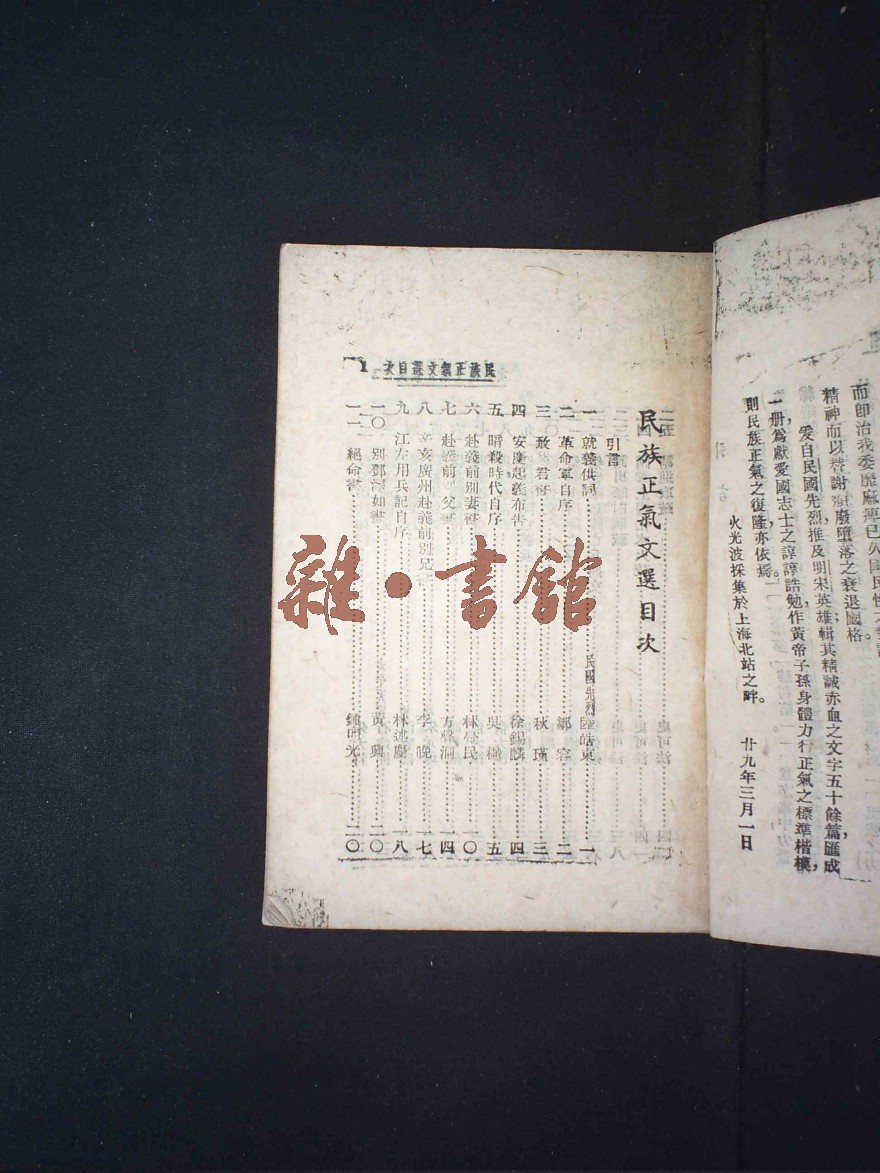 精神而以替謝頹廢墮落之衰退國格。
爰自民國先烈推及明宋英雄輯其精誠赤血之文字五十餘篇，匯成
一册，爲獻愛國志士之諄諄誥勉，作黃帝子孫身體力行正氣之標準楷模，
則民族正氣之復隆亦依焉。
火光波採集於上海北站之畔。 廿九年三月一日
民族正氣文選目次
引言
一 就義供詞 民國先烈陸皓東 一
二 革命軍自序 鄒容 二
三 致 君書 秋瑾 三
四 安慶起義布告 徐錫麟 四
五 暗殺時代自序 吳樾 五
六 赴義前別妻書 林覺民 一〇
七 赴義前 父書 方聲洞 一四
八 辛亥廣州赴義前別兄書 李晚 一七
九 江左用兵記自序 林述慶 一八
一〇 別鄧澤如書 黃興 二〇
一一 絕命書 鍾明光 二〇
民族正氣文選目次 1
雜·書館